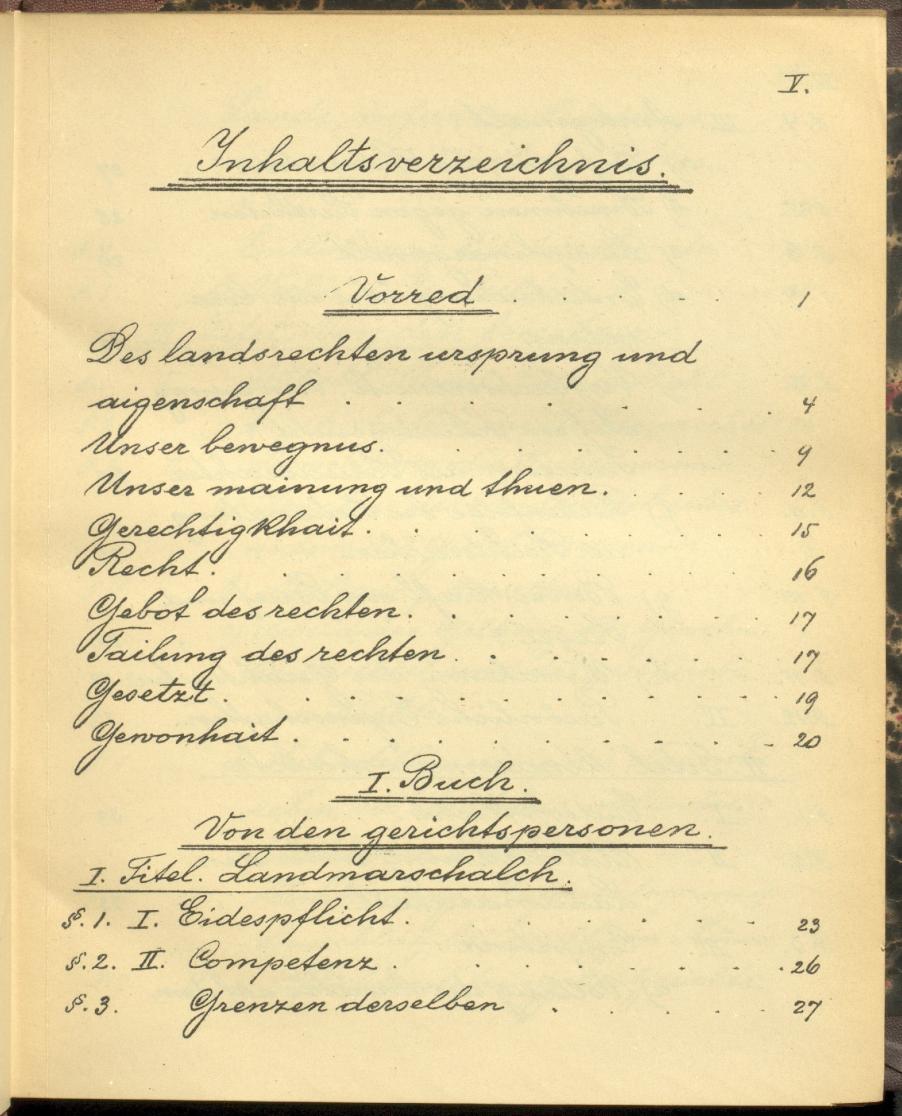 V.
Inhaltsverzeichnis.
Vorred . . . . 1
Des landsrechten ursprung und
aigenschaft . . . . . . . 4
Unser bewegnus. . . . . . . . 9
Unser mainung und thuen. . . . . 12
Gerechtigkhait. . . . . . . . 15
Recht. . . . . . . . . . 16
Gebot des rechten. . . . . . . 17
Tailung des rechten . . . . . . . 17
Gesetzt . . . . . . . . . . 19
Gewonhait . . . . . . . . . 20
I. Buch.
Von den gerichtspersonen.
I. Titel. Landmarschalch.
§. 1. I. Eidespflicht . . . . . . 23
§. 2. II. Competenz . . . . . . . 26
§. 3. Grenzen derselben . . . . . 27